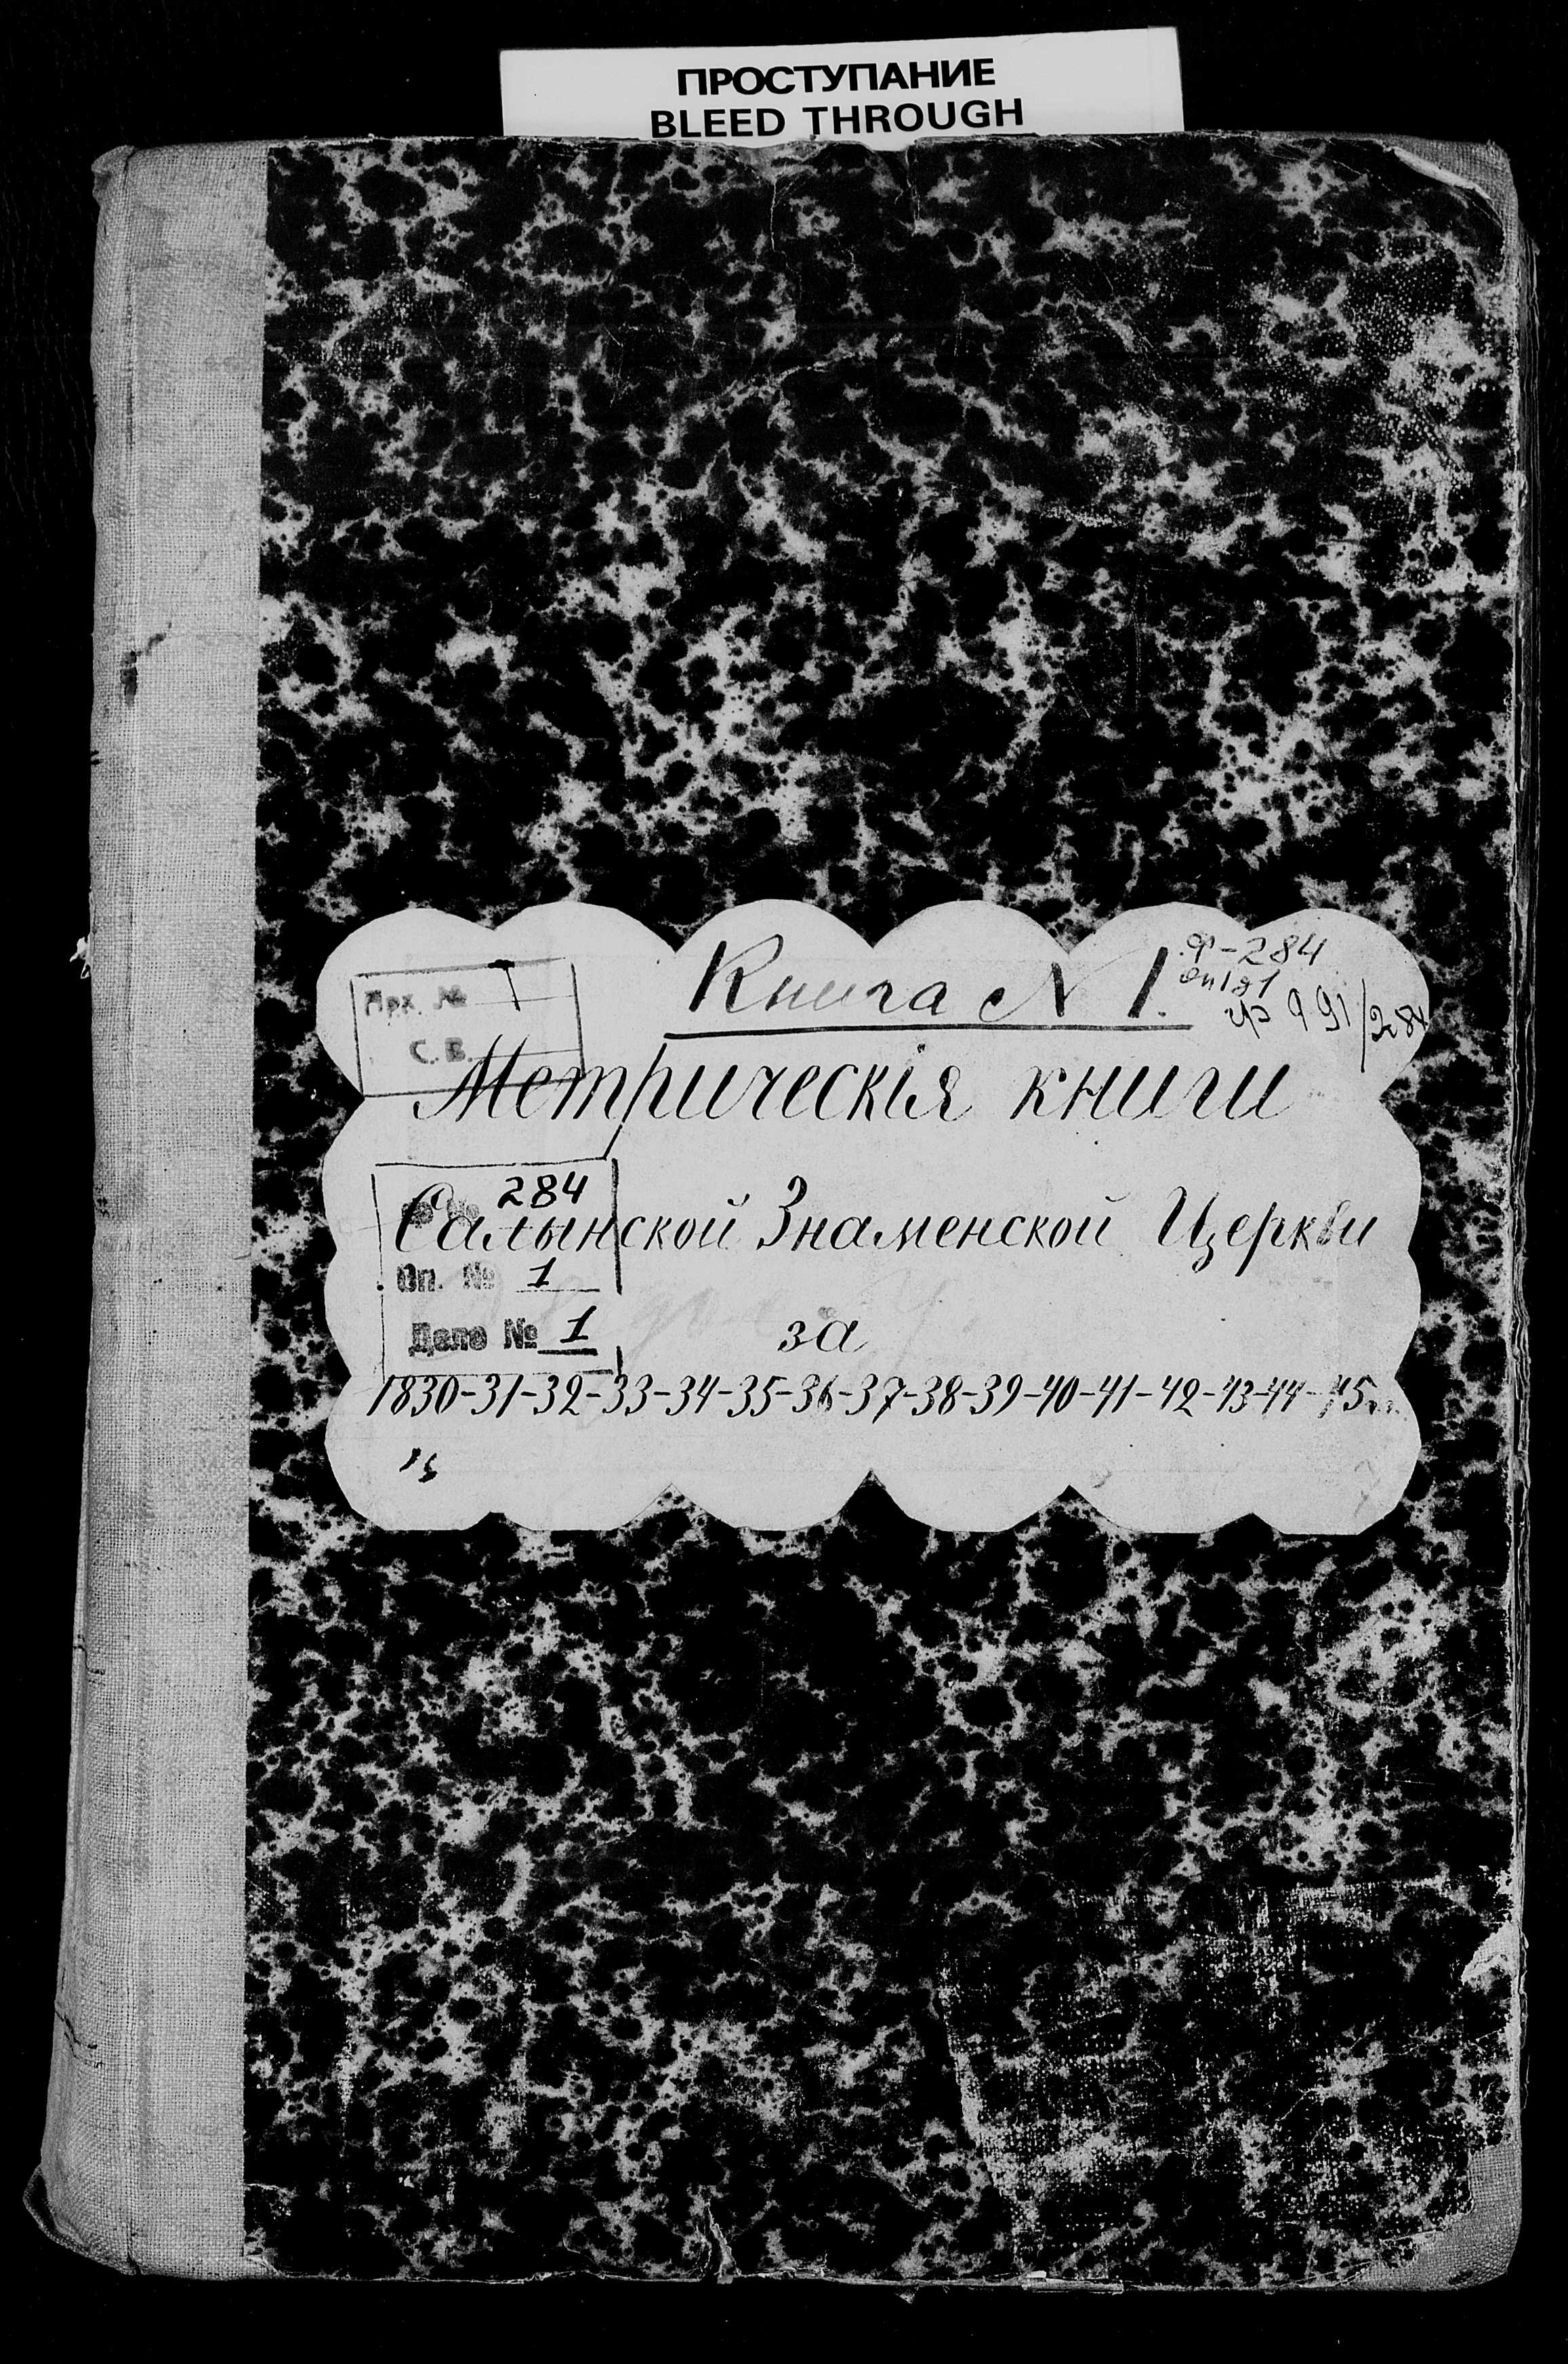 ПРОСТУПАНИЕ
BLEED THROUGH
Книга N 1.
ф-284
оп1д1
991/284
Арх. №
С. В.
Метрическія книги
284
Салынской Знаменской Церкви
Оп. № 1
Дело № 1
за
1830-31-32-33-34-35-36-37-38-39-40-41-42-43-44-45